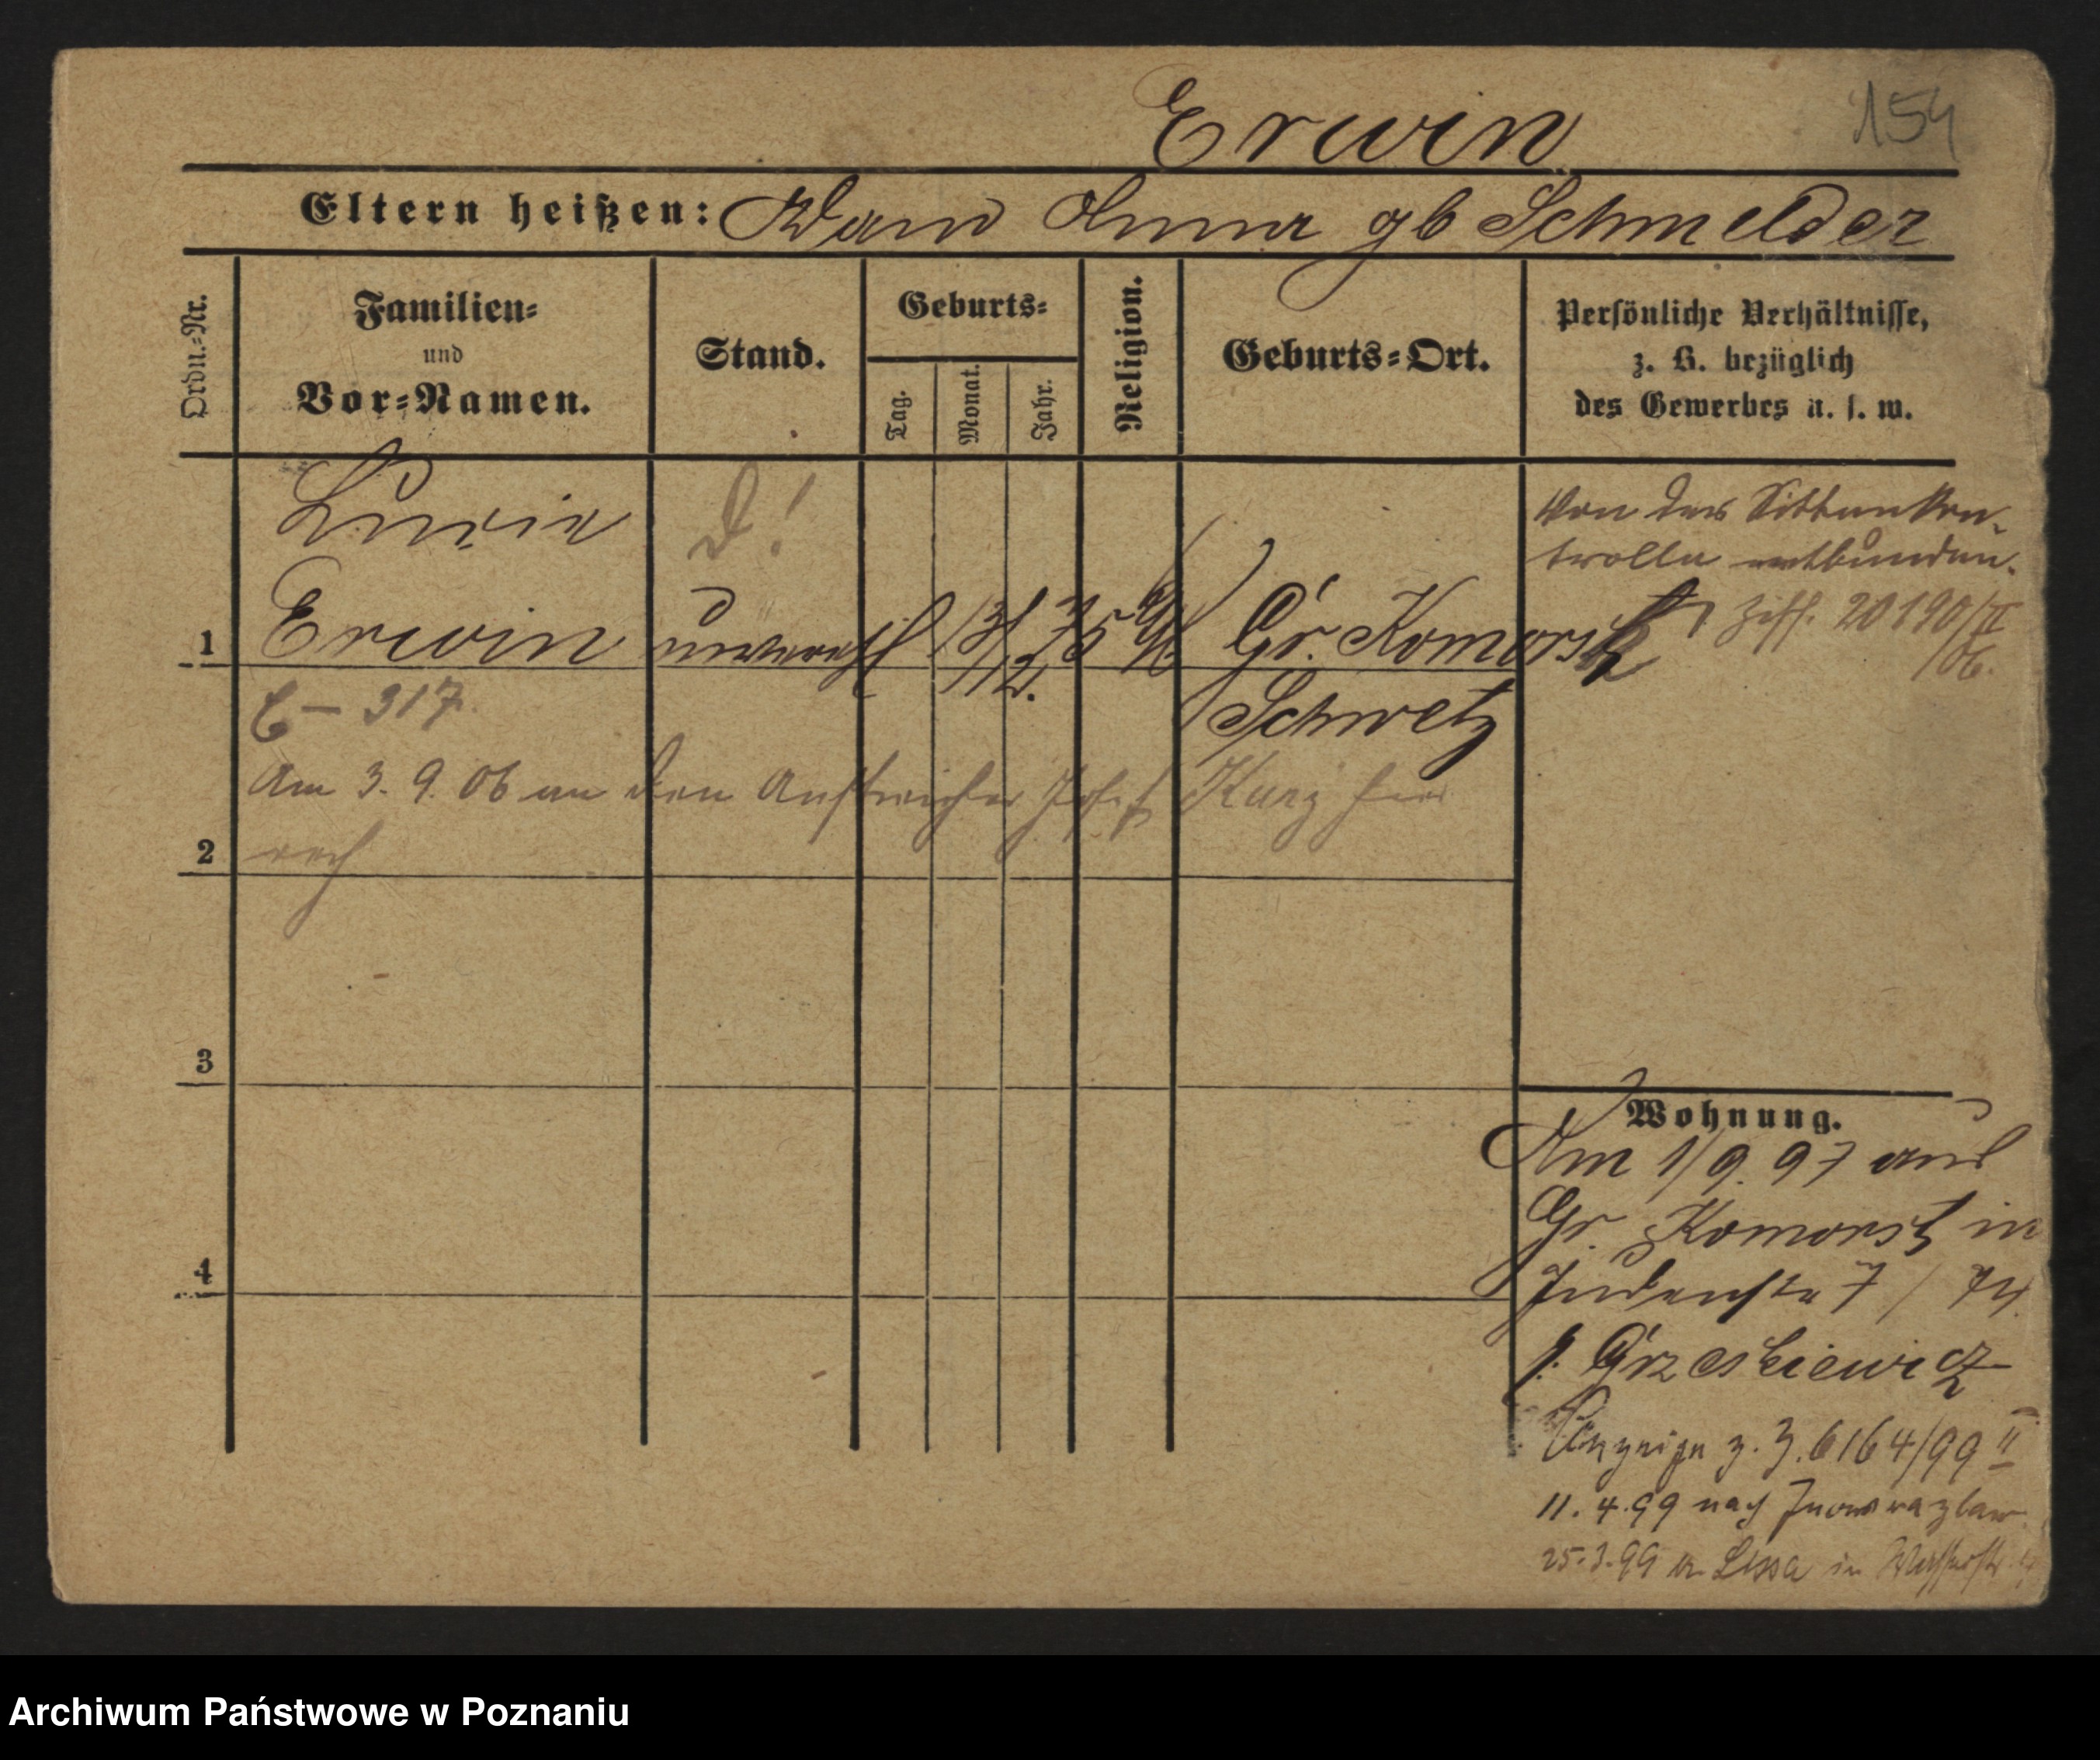 Erwin
154
Eltern heißen: Adam Anna gb Schmelder
Ordn.-Nr.
Familien-
und
Vor-Namen.
Stand.
Geburts-
Tag.
Monat.
Jahr.
Religion.
Geburts-Ort.
Persönliche Verhältnisse,
z. B. bezüglich
des Gewerbes u. s. w.
Von der Sittenkon-
trolle entbunden.
1
Erwin unvereh 13/12. 75 Gr. Komorsk
20190/II
/06.
Schwetz
E – 317.
Am 3. 9. 06 an den Anstreicher Josef Kurz hier
2
3
4
Wohnung.
Am 1/9. 97 aus
Gr. Komorsk in
Judenstr 7 / 74.
b. Grzeskiewicz
Anzeige z. J. 6164/99 II
11. 4. 99 nach Inowrazlaw
25. 3. 99 v. Lissa in
Archiwum Państwowe w Poznaniu